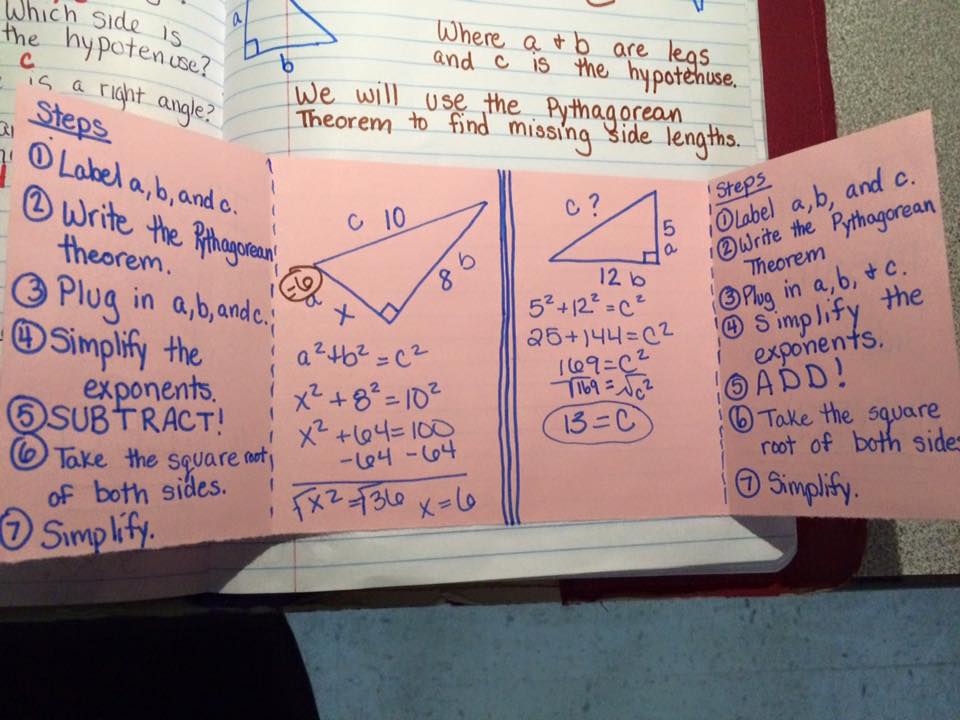 Which side is
the hypotenuse?
c
is a right angle?
a
b
Where a + b are legs
and c is the hypotenuse.
We will use the Pythagorean
Theorem to find missing side lengths.
Steps
① Label a, b, and c.
② Write the Pythagorean
theorem.
③ Plug in a, b, and c.
④ Simplify the
exponents.
⑤ SUBTRACT!
⑥ Take the square root
of both sides.
⑦ Simplify.
c 10
8 b
-6
a
x
a² + b² = c²
x² + 8² = 10²
x² + 64 = 100
-64 -64
√x² = √36 x = 6
c ?
5
a
12 b
5² + 12² = c²
25 + 144 = c²
169 = c²
√169 = √c²
13 = c
Steps
① Label a, b, and c.
② Write the Pythagorean
Theorem
③ Plug in a, b, + c.
④ Simplify the
exponents.
⑤ ADD!
⑥ Take the square
root of both sides
⑦ Simplify.